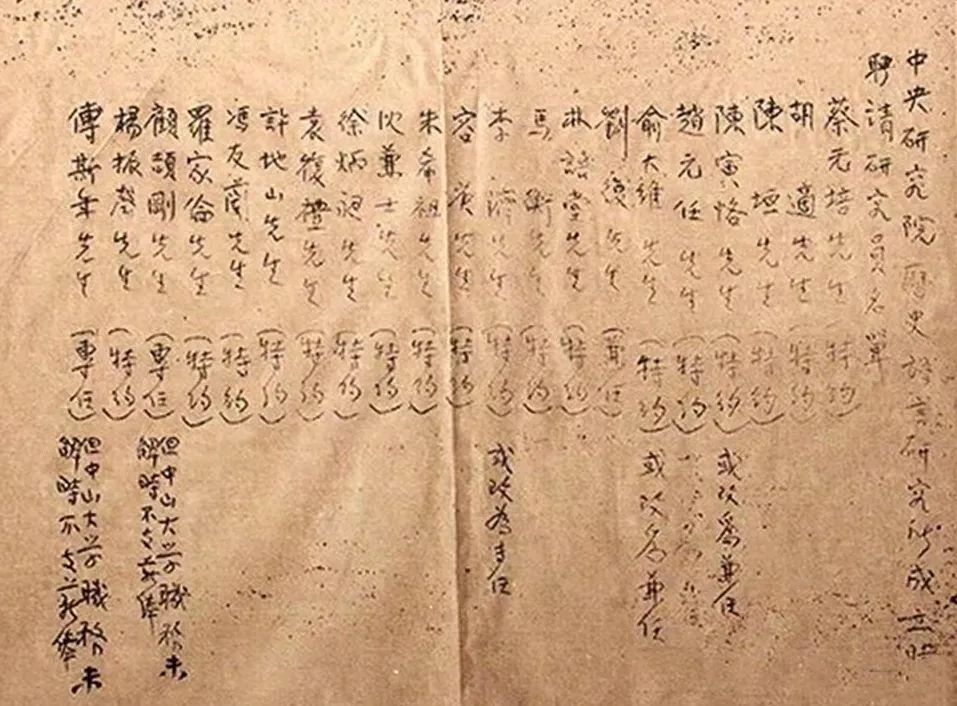 中央研究院歷史語言研究所成立時
聘請研究員名單
蔡元培先生（特約）
胡適先生（特約）
陳垣先生（特約）
陳寅恪先生（特約）或改爲兼任
趙元任先生（特約）
俞大維先生（特約）或改爲兼任
劉復先生（兼任）
林語堂先生（特約）
馬衡先生（特約）
李濟先生（特約）或改為專任
容庚先生（特約）
朱希祖先生（特約）
沈兼士先生（特約）
徐炳昶先生（特約）
袁復禮先生（特約）
許地山先生（特約）
馮友蘭先生（特約）
羅家倫先生（特約）
顧頡剛先生（專任）但中山大學職務未
解時不支薪俸
楊振聲先生（特約）
傅斯年先生（專任）但中山大學職務未
解時不支薪俸